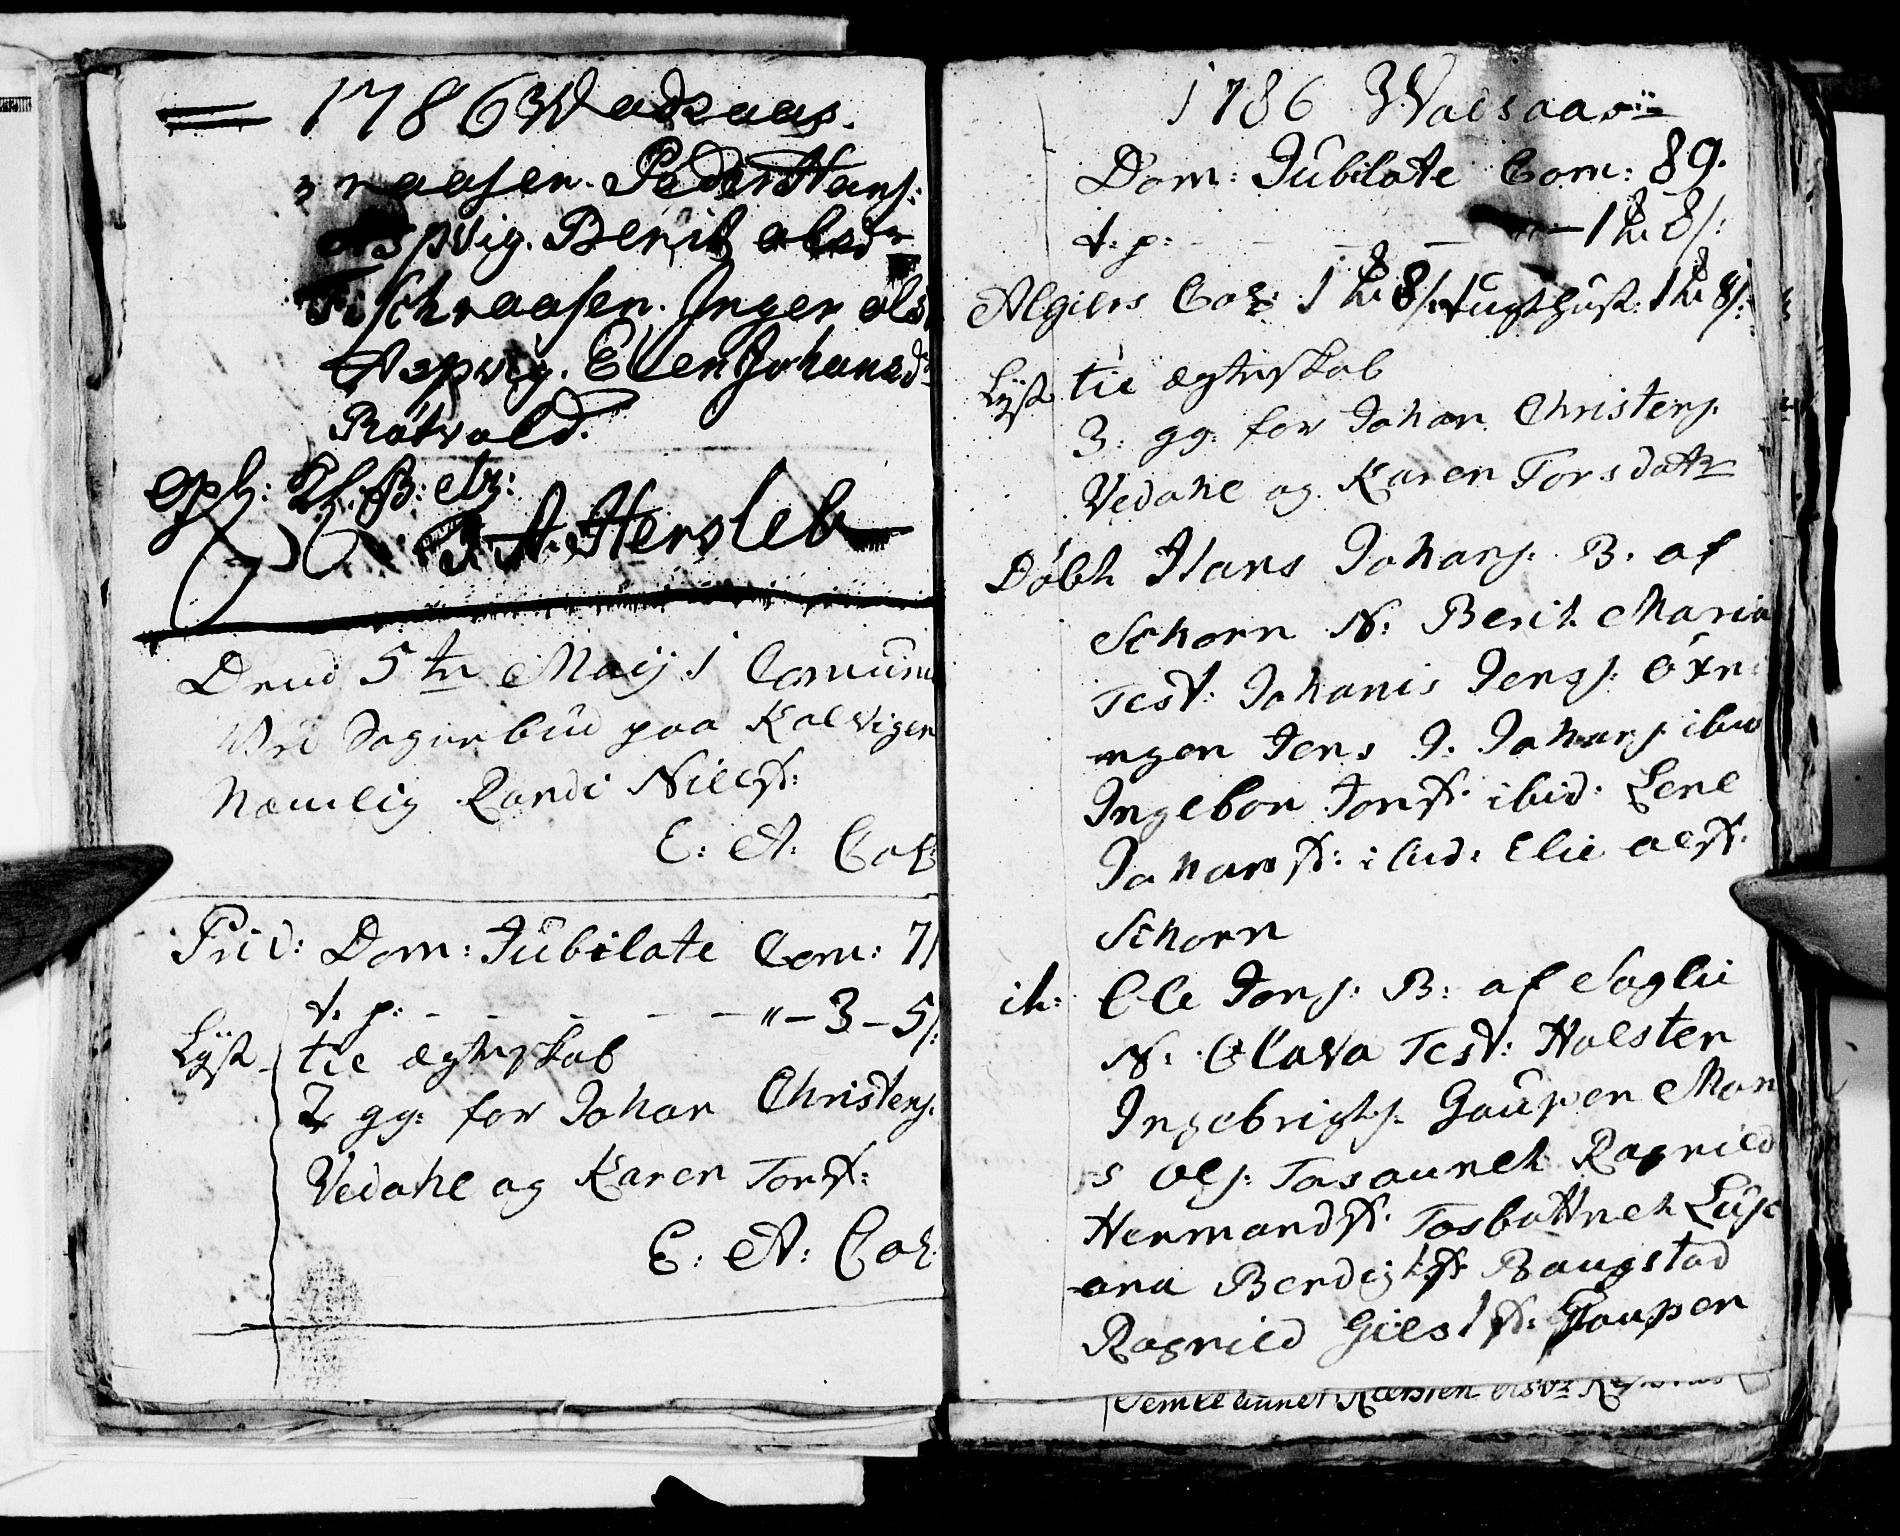 1786 Wadsaas.
raasen. Peder Hans:
Aspvig. Berit olsd
Fischraasen. Inger ols
Aspvig. Elen Johansd
Rötvold.
I. A. Hersleb
Dend 5te Maij 1 Comuni
Ved Sognebud paa Kalvigen
Næmlig Randi Nilsd:
E: A: Col
Prid: Dom: Jubilate Com: 71
t. p: - - - - - " - 3 - 5/:
Lÿst til ægteskab
2 gg: for Johan Christens:
Vedahl og Karen Torsd:
E: A: Col:
1786 Walsaas
Dom: Jubilate Com: 89.
t: p: - - - - 1 8/:
Algiers Col: 1 8/: tugthuset: 1 8/:
Lÿst til ægteskab
3: gg: for Johan Christens.
Vedahl og Karen Torsdatr
Döbt Hans Johans: B. af
Schorn N: Berit Maria
Test: Johanis Jens: Öxn
ngen Jens J. Johans ibid
Ingebor Jonsd. ibid: Lene
Johansd: ibid: Elie olsd:
Schorn
it: Ole Jons: B: af Soglie
N: Olava Test: Holsten
Ingebrigts. Gaupen Mon
s Ols: Tasaunet Ragnild
Hermandsd: Tosbotnet Lus
ana Berdigtsd: Baugstad
Ragnild Gilsd: Gaupen